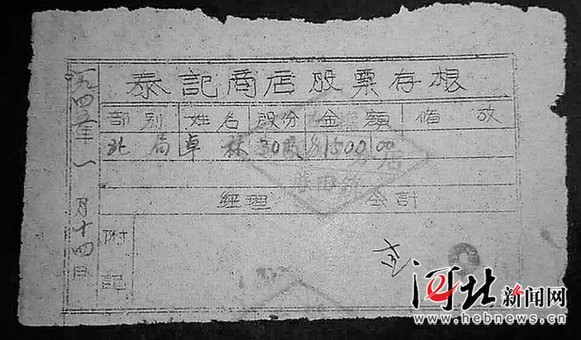 泰記商店股票存根
部别 姓名 股份 金額 備攷
北局 卓林 30股 $1500.00
經理 会計
附記
一九四五年一月十四日
河北新闻网
www.hebnews.cn